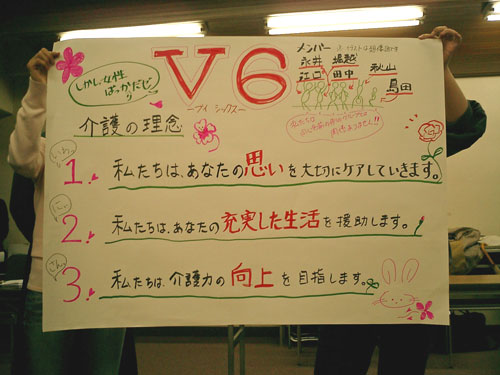 V6
ーブイ シックスー
しかし女性
ばっかだじ
メンバー
永井 堀越 秋山
江口 田中 島田
介護の理念
1. 私たちは、あなたの思いを大切にケアしていきます。
2. 私たちは、あなたの充実した生活を援助します。
3. 私たちは、介護力の向上を目指します。